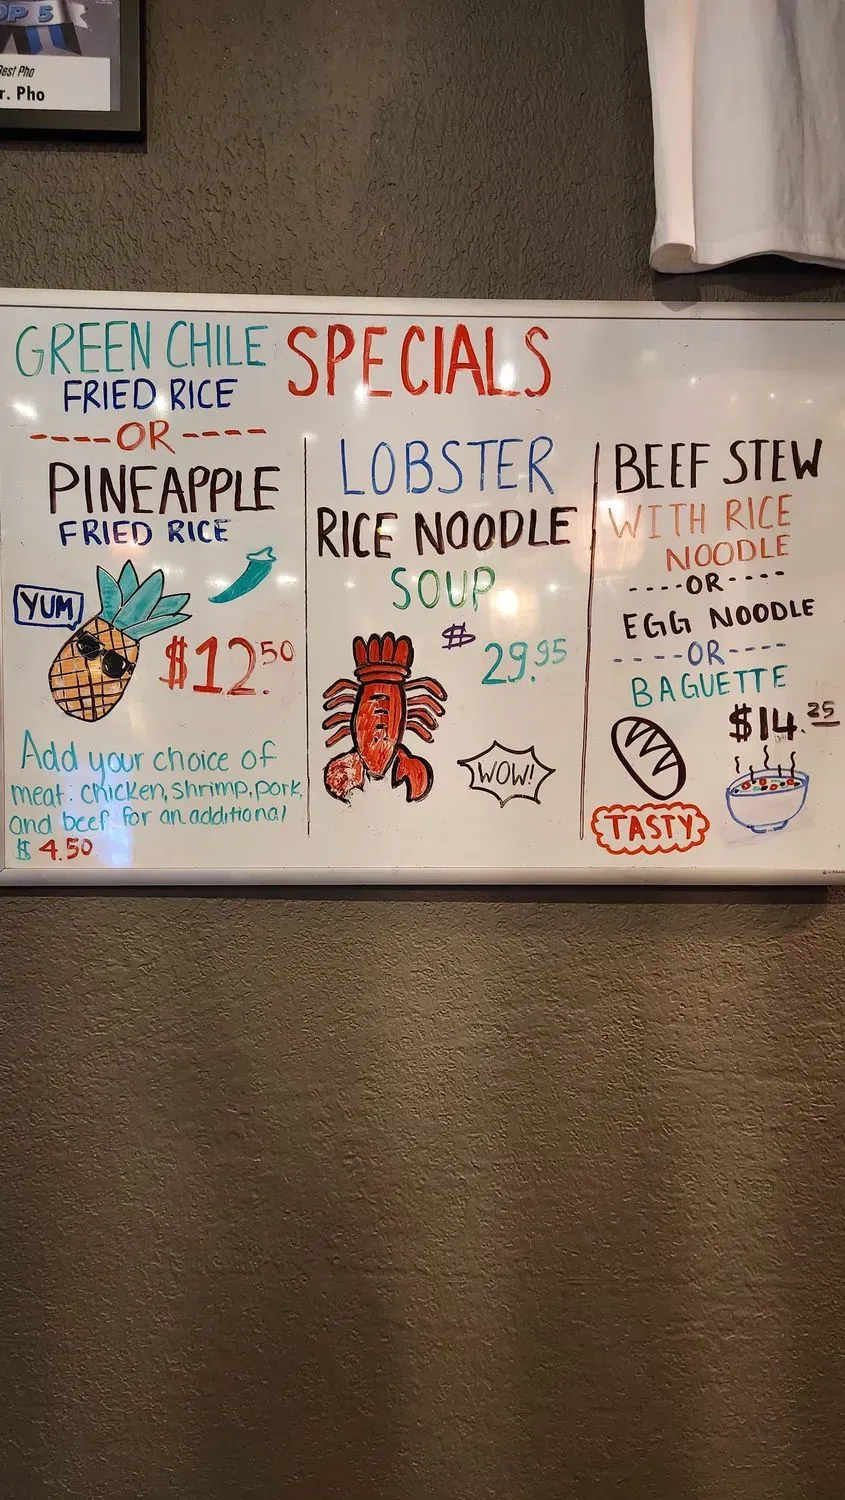 OP 5
Best Pho
r. Pho
SPECIALS
GREEN CHILE
FRIED RICE
----OR----
PINEAPPLE
FRIED RICE
YUM
$12.50
Add your choice of
meat: chicken, shrimp, pork,
and beef for an additional
$ 4.50
LOBSTER
RICE NOODLE
SOUP
$ 29.95
WOW!
BEEF STEW
WITH RICE
NOODLE
----OR----
EGG NOODLE
----OR----
BAGUETTE
$14.25
TASTY